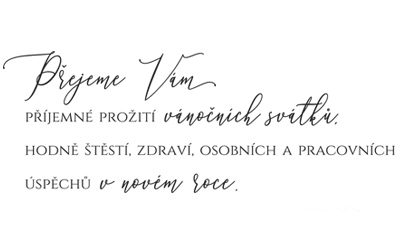 Přejeme Vám
příjemné prožití vánočních svátků.
hodně štěstí, zdraví, osobních a pracovních
úspěchů v novém roce.